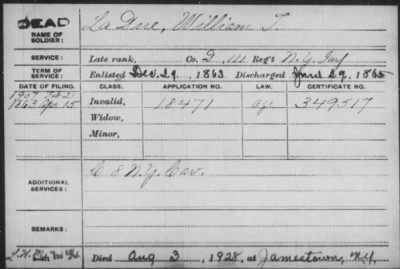 DEAD
NAME OF SOLDIER: La Due, William T.
SERVICE: Late rank, Co. D, 111 Reg't N.Y. Inf
TERM OF SERVICE: Enlisted Dec. 29, 1863 Discharged June 29, 1865
DATE OF FILING. CLASS. APPLICATION NO. LAW. CERTIFICATE NO.
1907 Feb 27
1863 Apr. 15 Invalid, 18471 349517
Widow,
Minor,
ADDITIONAL SERVICES: C 8 N.Y. Cav.
REMARKS:
Died Aug 3, 1928, at Jamestown, N.Y.